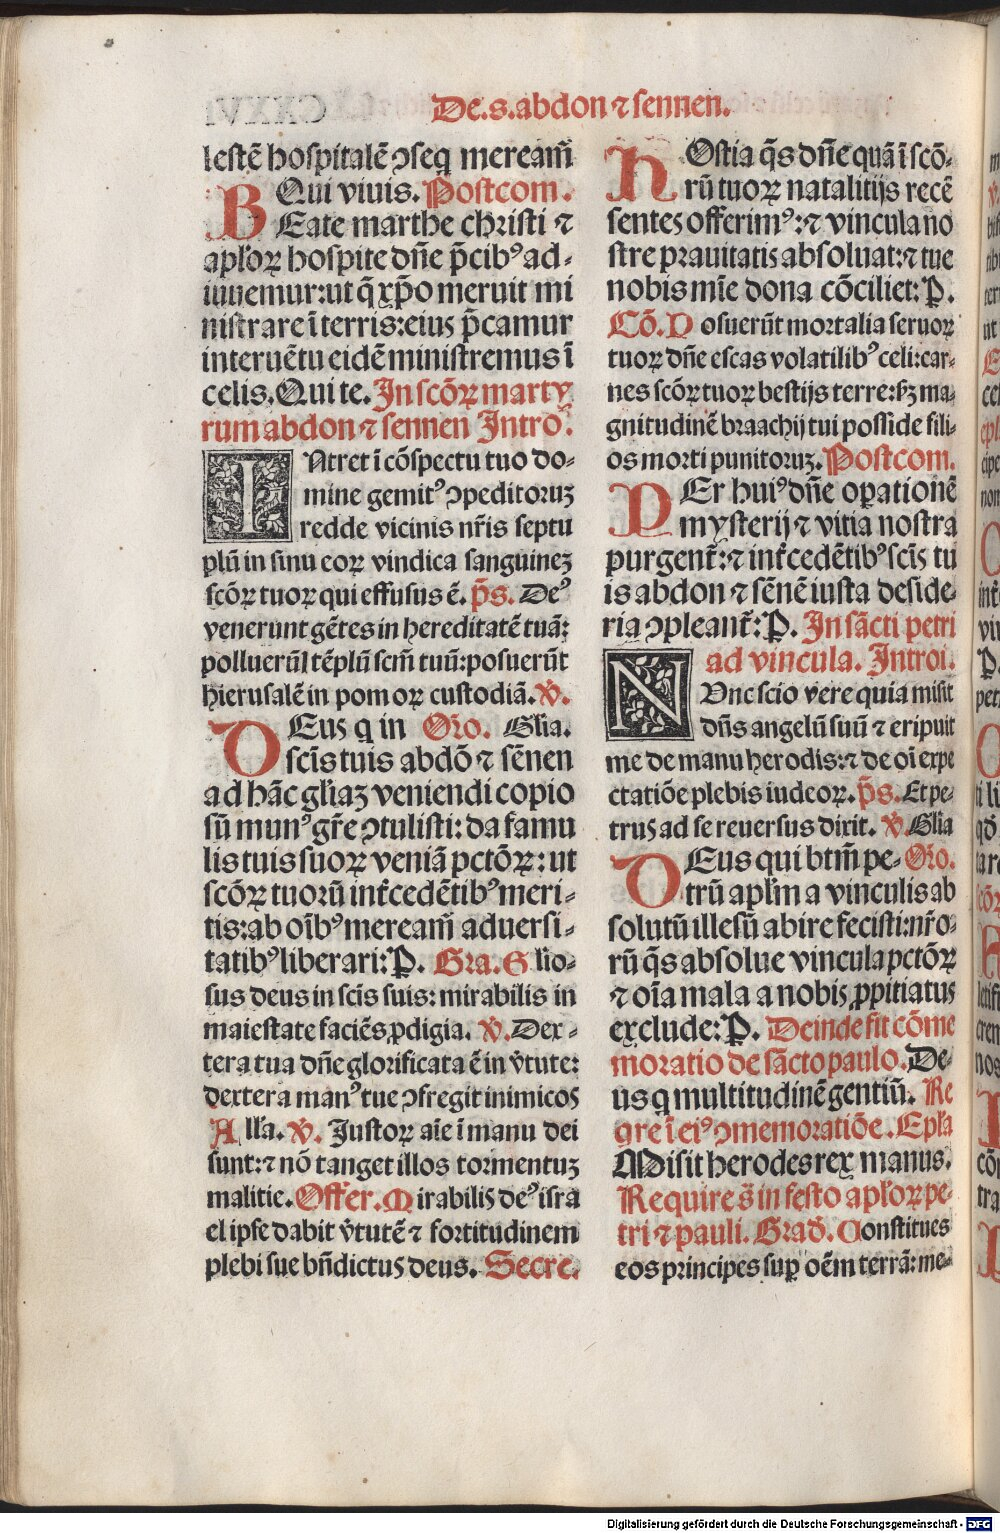 De.s.abdon ⁊ sennen.
lestē hospitalē ꝯseq mereaḿ
Qui viuis. Postcom.
BEate marthe christi ⁊
apl'oꝝ hospite dn̄e p̄cibꝰ ad-
iuuemur:ut q̄ xp̄o meruit mi
nistrare ī terris:eius p̄camur
interuētu eidē ministremus ī
celis.Qui te. In scōꝝ marty
rum abdon ⁊ sennen Intro⁊.
INtret ī cōspectu tuo do-
mine gemitꝰ ꝯpeditoruꝫ
redde vicinis nr̄is septu
plū in sinu eoꝝ vindica sanguineꝫ
scōꝝ tuoꝝ qui effusus ē. p̄s. Deꝰ
venerunt gētes in hereditatē tuā:
polluerūt tēplū scm̄ tuū:posuerūt
hierusalē in pomoꝝ custodiā. ℣.
DEus q in Oro. Glīa.
scīs tuis abdō ⁊ sēnen
ad hāc gl'iaꝫ veniendi copio
sū munꝰ gr̄e ꝯtulisti: da famu
lis tuis suoꝝ veniā pctōꝝ: ut
scōꝝ tuorū int̄cedētibꝰ meri-
tis:ab oībꝰ mereaḿ aduersi-
tatibꝰ liberari:P. Gra. Glio-
sus deus in scīs suis: mirabilis in
maiestate faciēs ꝓdigia. ℣. Dex-
tera tua dn̄e glorificata ē in v̄tute:
dextera manꝰ tue ꝯfregit inimicos
All'a. ℣. Justoꝝ aīe ī manu dei
sunt:⁊ nō tanget illos tormentuꝫ
malitie. Offer. Mirabilis deꝰ isra
el ipse dabit v̄tutē ⁊ fortitudinem
plebi sue bn̄dictus deus. Secre.
HOstia q̄s dn̄e quā ī scō-
rū tuoꝝ natalitijs recē
sentes offerimꝰ:⁊ vincula no
stre prauitatis absoluat:⁊ tue
nobis mīe dona cōciliet: P.
Cō. Posuerūt mortalia seruoꝝ
tuoꝝ dn̄e escas volatilibꝰ celi:car-
nes scōꝝ tuoꝝ bestijs terre:sꝫ ma-
gnitudinē braachij tui posside fili-
os morti punitoruꝫ. Postcom.
PEr huiꝰ dn̄e oꝑationē
mysterij ⁊ vitia nostra
purgent̄:⁊ int̄cedētibꝰ scīs tu
is abdon ⁊ sēnē iusta deside-
ria ꝯpleant̄: P. In sācti petri
ad vincula. Introi.
NUnc scio vere quia misit
dn̄s angelū suū ⁊ eripuit
me de manu herodis:⁊ de oī expe
ctatiōe plebis iudeoꝝ. p̄s. Et pe-
trus ad se reuersus dixit. ℣. Glīa
DEus qui btm̄ pe- Oro.
trū apl'm a vinculis ab
solutū illesū abire fecisti:nr̄o-
rū q̄s absolue vincula pctōꝝ
⁊ oīa mala a nobis ꝓpitiatus
exclude: P. Deinde fit cōme
moratio de sācto paulo. De-
us q multitudinē gentiū. Re
qre ī eiꝰ ꝯmemoratiōe. Epl'a
Misit herodes rex manus.
Require s̄ in festo apl'oꝝ pe-
tri ⁊ pauli. Grad. Constitues
eos principes suꝑ oēm terrā: me-
Digitalisierung gefördert durch die Deutsche Forschungsgemeinschaft - DFG